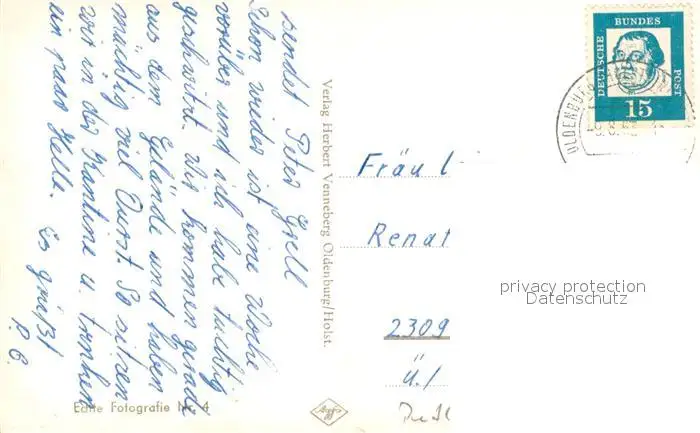 sendet Peter
Schon wieder ist eine Woche
vorüber und ich habe tüchtig
Wir kommen gerade
aus dem Gelände und haben
mächtig viel Durst. So sitzen
wir in der Kantine u. trinken
ein paar Helle. Es grüßt
P.
Echte Fotografie Nr. 4
Verlag Herbert Venneberg Oldenburg/Holst.
DEUTSCHE BUNDES POST
15
OLDENBURG
Fräul
Renat
2309
Ü./
privacy protection
Datenschutz